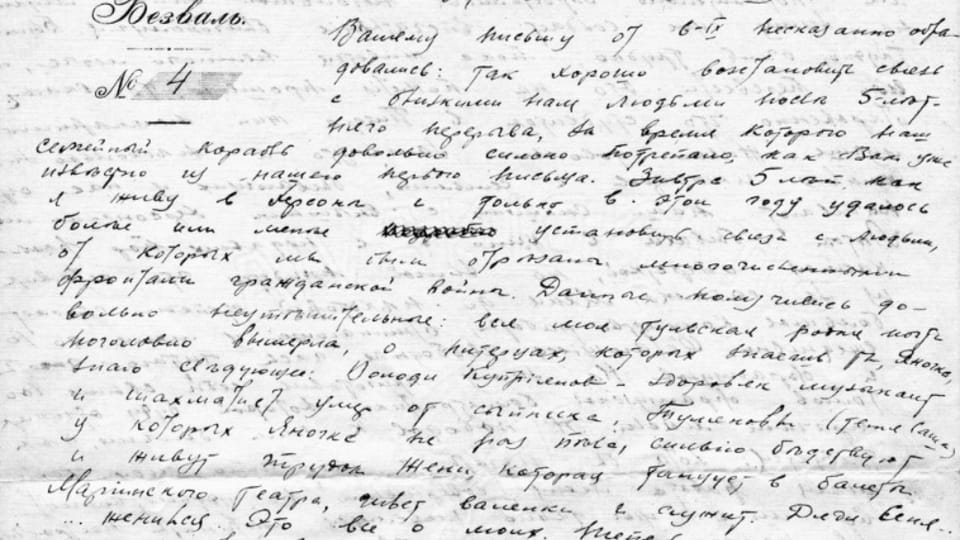 Везваль.
№ 4
Вашему письму от 6-IX несказанно обра-
довались: так хорошо возстановить связь
с близкими нам людьми после 5-лѣт-
няго перерыва, за время котораго наш
семейный корабль довольно сильно потрепало, как Вам уже
извѣстно из нашего перваго письма. Завтра 5 лѣт, как
я живу в Херсонѣ и только в этом году удалось
болѣе или менѣе установить связь с людьми,
от которых мы были отрѣзаны многочисленными
фронтами гражданской войны. Данные получились до-
вольно неутѣшительные: вся моя тульская родня почти
поголовно вымерла, о питерцах, которых знаешь ты, Яночка,
знаю слѣдующее: Володя – здоровяк музыкант
и шахматист умер от сыпняка, (тетя Саша)
у которых Яночка не раз пѣла, сильно бѣдствуют
и живут трудом Жени, которая танцует в балетѣ
Маріинскаго театра, шьет валенки и служит. Дядя Сеня
женился. Это все о моих.